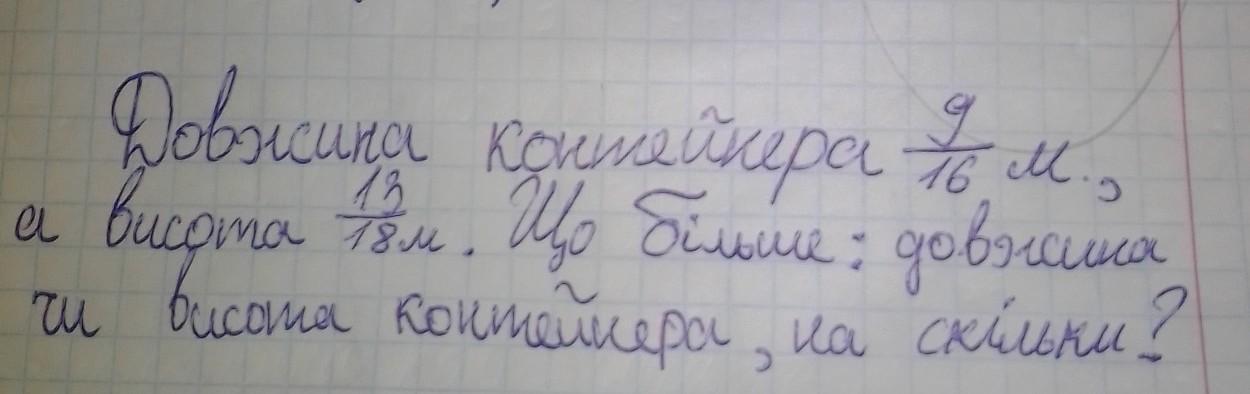 Довжина контейнера 9/16 м.,
а висота 13/18 м. Що більше: довжина
чи висота контейнера, на скільки?